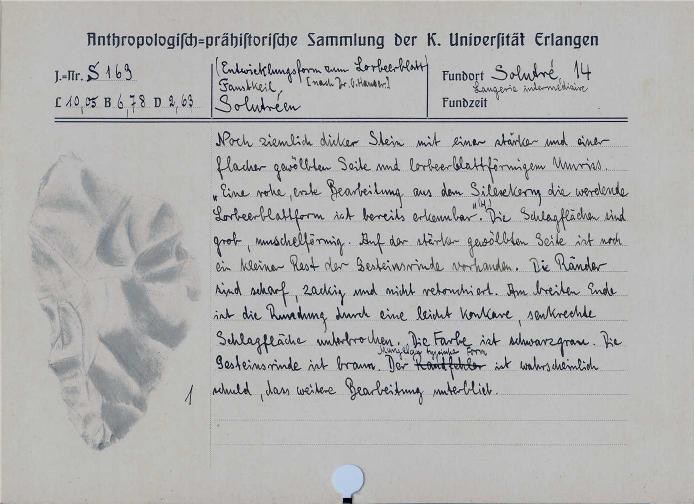 Anthropologisch=prähistorische Sammlung der K. Universität Erlangen
J.=Nr. S 169
L 10,05 B 6,78 D 2,63
(Entwicklungsform zum Lorbeerblatt)
Faustkeil [nach Dr. O. Hauser]
Solutréen
Fundort Solutré, 14
Laugerie intermédiaire
Fundzeit
Noch ziemlich dicker Stein mit einer stärker und einer
flacher gewölbten Seite und lorbeerblattförmigem Umriss.
„Eine rohe, erste Bearbeitung aus dem Silexkern, die werdende
Lorbeerblattform ist bereits erkennbar." (H) Die Schlagflächen sind
grob, muschelförmig. Auf der stärker gewölbten Seite ist noch
ein kleiner Rest der Gesteinsrinde vorhanden. Die Ränder
sind scharf, zackig und nicht retouchiert. Am breiten Ende
ist die Rundung durch eine leicht konkave, senkrechte
Schlagfläche unterbrochen. Die Farbe ist schwarzgrau. Die
Gesteinsrinde ist braun. Der ist wahrscheinlich
schuld, dass weitere Bearbeitung unterblieb.
1